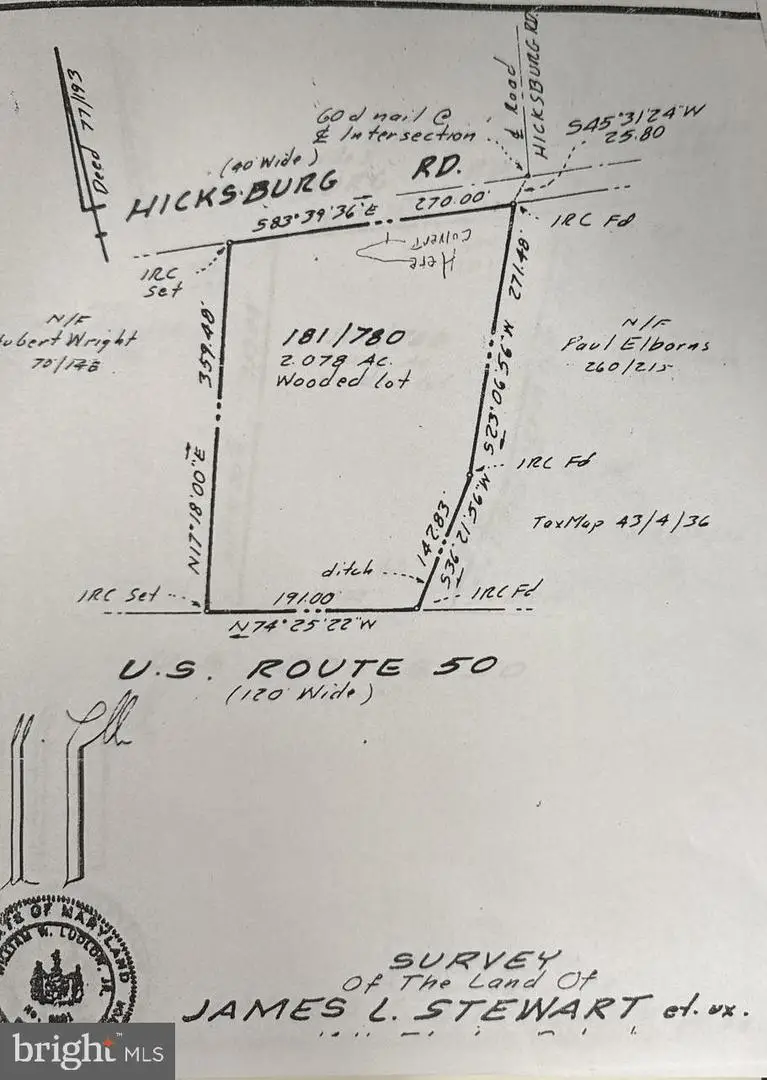 Deed 77/193
HICKSBURG RD.
℄ Road
60d nail @
℄ Intersection
S45°31'24"W
25.80
(40' Wide)
HICKSBURG RD.
S83°39'36"E 270.00'
IRC Fd
IRC
Set
Here
Culvert
N/F
Hubert Wright
359.48'
N17°18'00"E
181/780
2.078 AC.
Wooded lot
271.48'
S23°06'56"W
N/F
Paul Elborns
IRC Fd
142.83'
S36°21'56"W
TaxMap 43/4/36
ditch
IRC Set
191.00'
IRC Fd
N74°25'22"W
U.S. ROUTE 50
(120' Wide)
STATE OF MARYLAND
WILLIAM W. LUDLOW, JR.
SURVEY
Of The Land Of
JAMES L. STEWART et. ux.
bright™ MLS